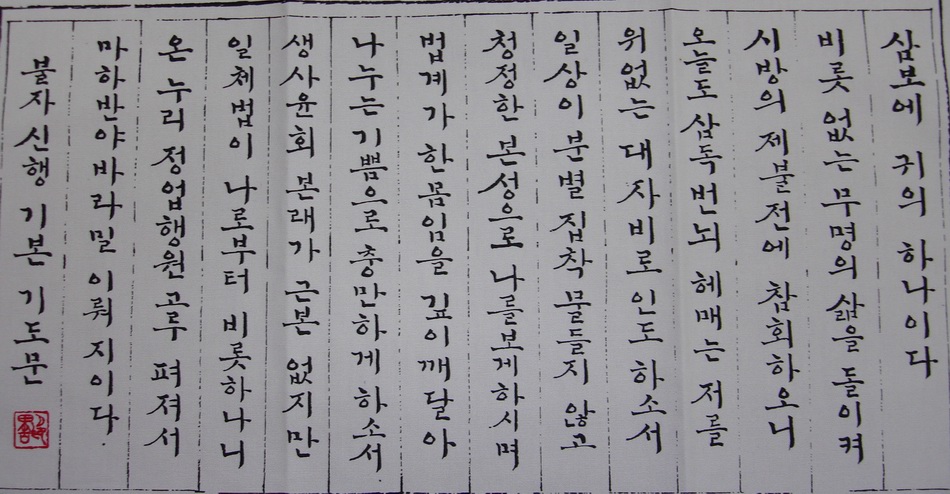 삼보에 귀의 하나이다
비롯 없는 무명의 삶을 돌이켜
시방의 제불전에 참회하오니
오늘도 삼독번뇌 헤매는 저를
위없는 대자비로 인도하소서
일상이 분별 집착 물들지 않고
청정한 본성으로 나를보게하시며
법계가 한몸임을 깊이깨달아
나누는기쁨으로 충만하게 하소서
생사윤회 본래가 근본 없지만
일체법이 나로부터 비롯하나니
온 누리 정업행원 고루 펴져서
마하반야바라밀 이뤄 지이다.
불자신행 기본 기도문